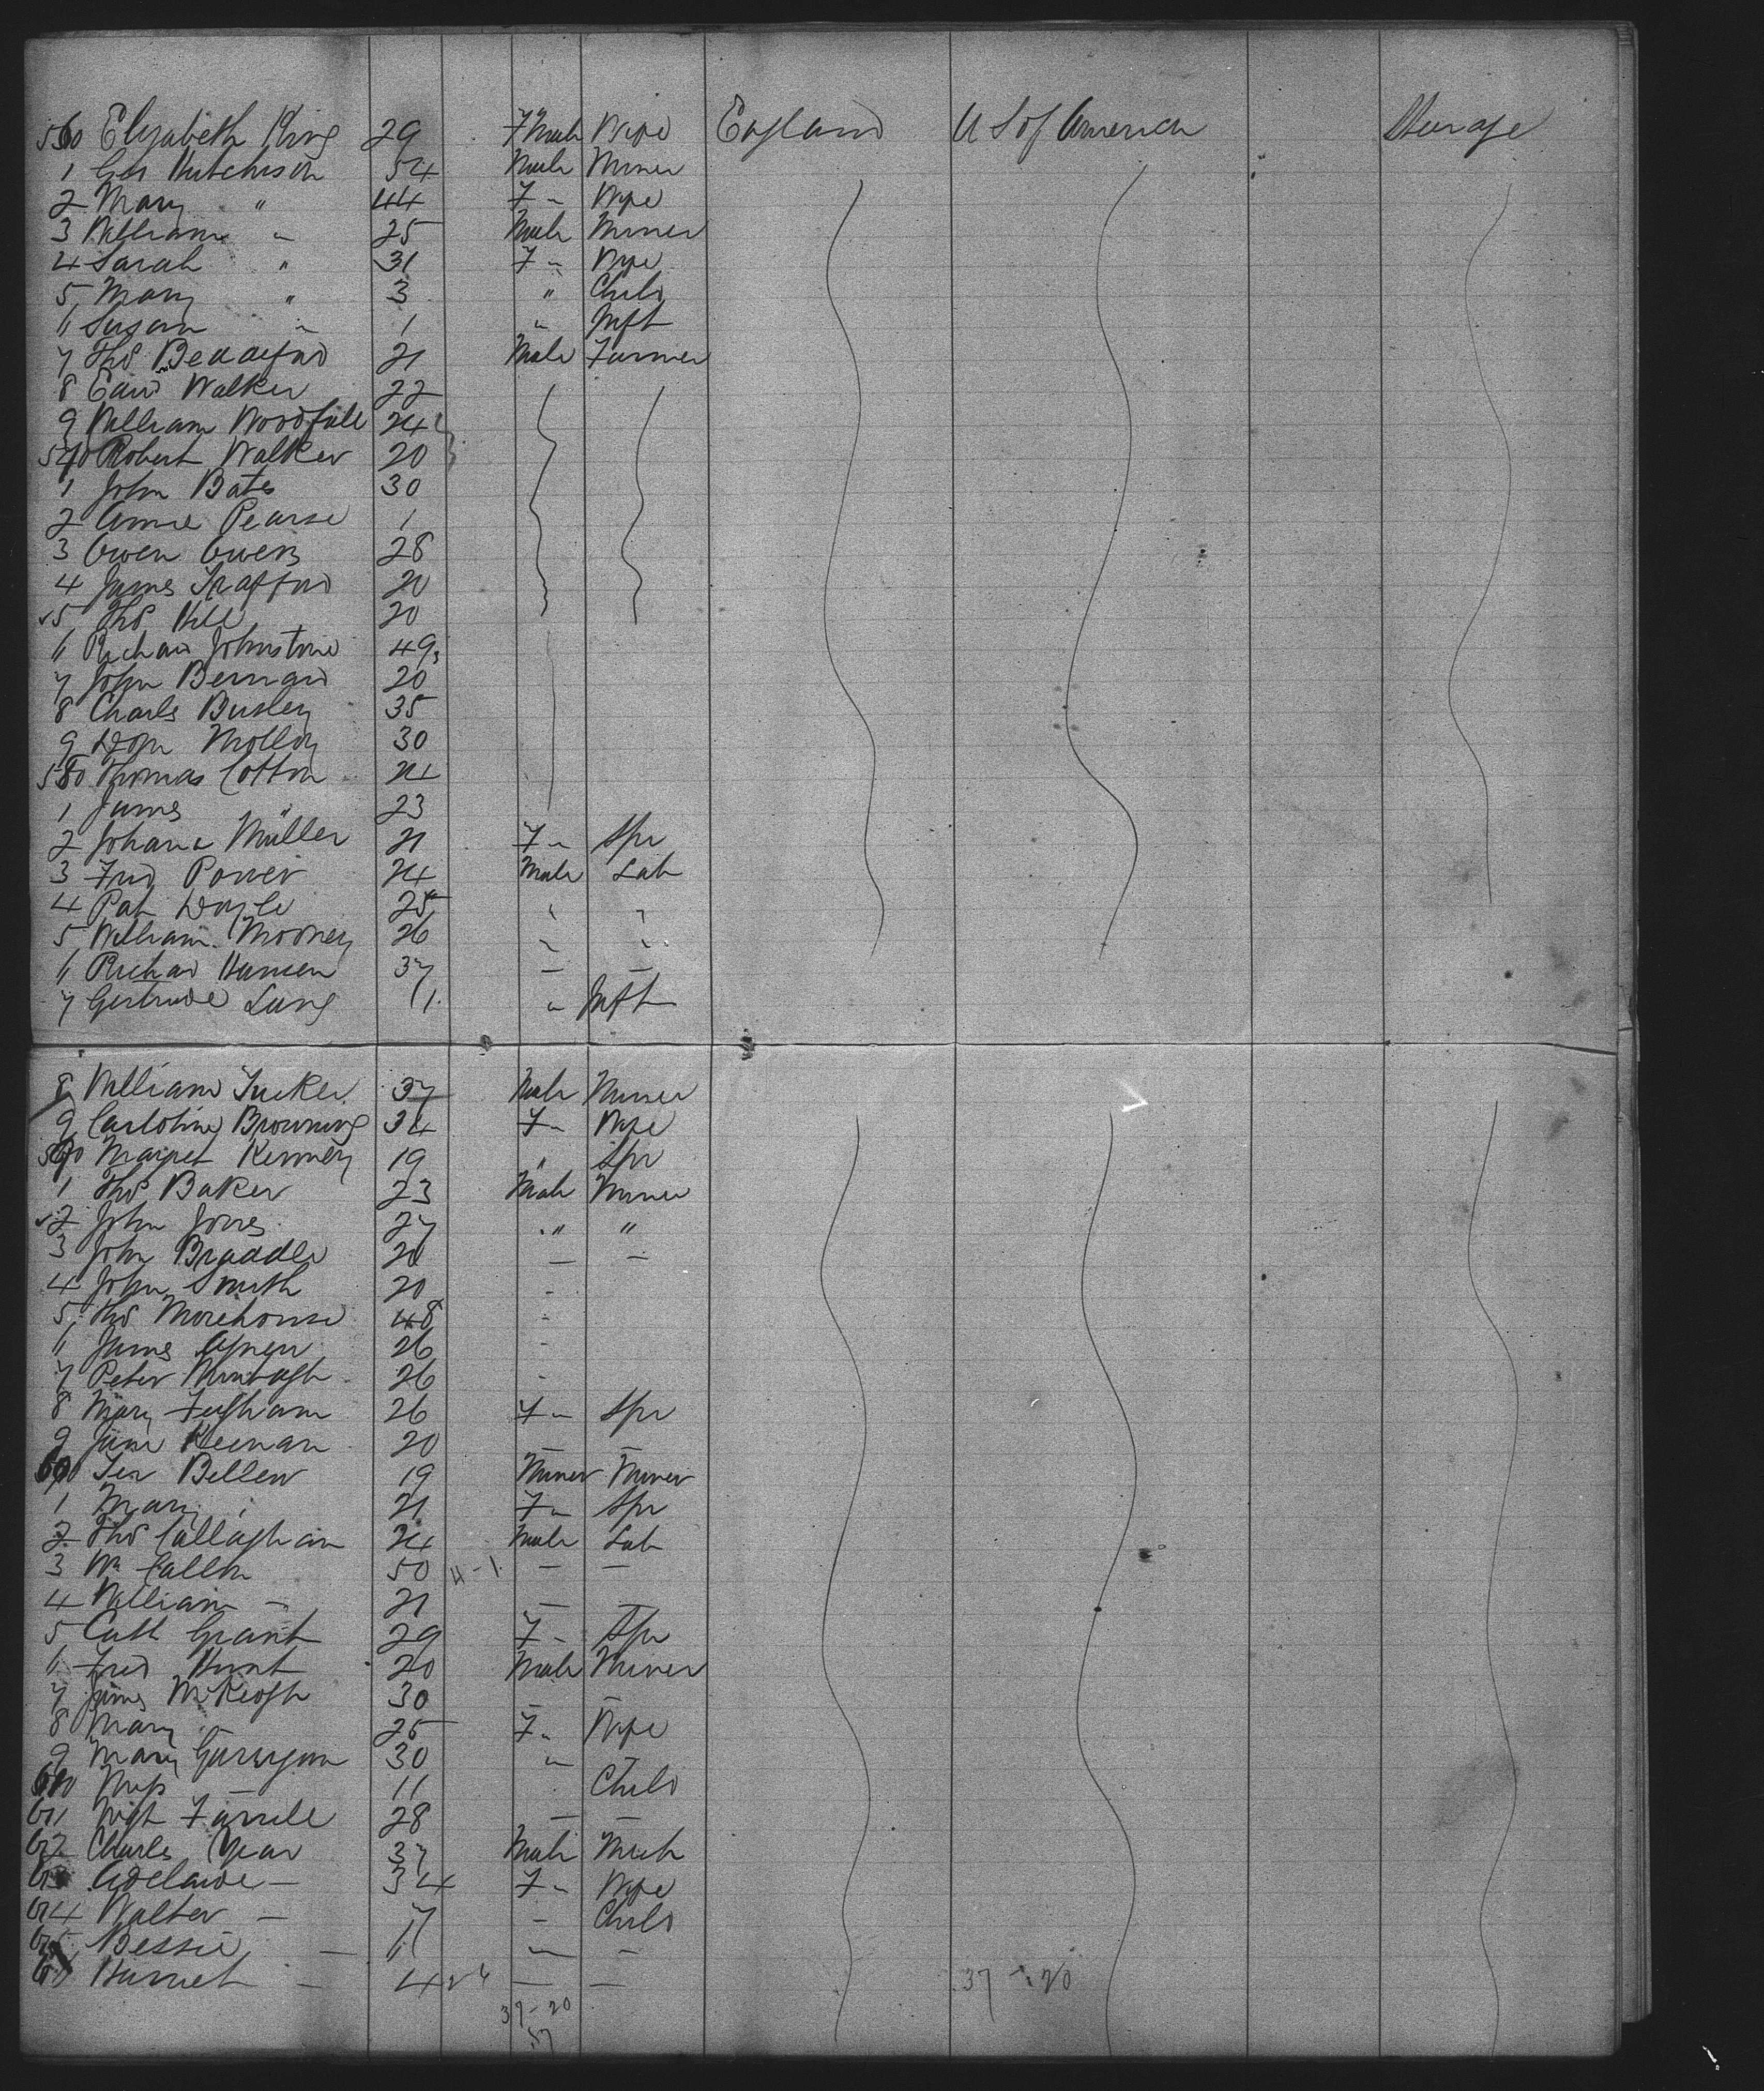 560 Elizabeth King 29 Fmale Wife England U S of America Steerage
1 Geo Hutchison 54 Male Miner
2 Mary " 44 F " Wife
3 William " 25 Male Miner
4 Sarah " 31 F " Wife
5 Mary " 3 " Child
6 Susan " 1 " Inft
7 Thos 21 Male Farmer
8 Edwd Walker 22
9 William Woodfall 24
570 Robert Walker 20
1 John Bates 30
2 Annie Pearse 1
3 Owen Owens 28
4 James Trafford 20
5 Thos Hill 20
6 Richard Johnstone 49
7 John Bernard 20
8 Charls Busley 35
9 Dom Molloy 30
580 Thomas Cotton 24
1 James " 23
2 Johana Müller 21 F " Spr
3 Fred Power 24 Male Lab
4 Pat Doyle 25 " "
5 William Mooney 26 " "
6 Richard Hansen 37 — —
7 Gertrude Lang 11 " Inft
8 William Tucker 37 Male Miner
9 Browning 34 F " Wife
590 Margret Kenney 19 " Spr
1 Thos Baker 23 Male Miner
2 John Jones 27 " "
3 John Braddle 20 — —
4 John Smith 20 -
5 Thos Morehouse 48 -
6 James Agnew 26 -
7 Peter Murtagh 26 -
8 Mary 26 F " Spr
9 Jane Keenan 20 — —
600 Bellew 19 Miner Miner
1 Mary " 21 F " Spr
2 Thos Callaghan 24 Male Lab
3 Wm Callon 50 4 - 1 — —
4 William — 21 — —
5 Cath Grant 29 F " Spr
6 Fred Hunt 20 Male Miner
7 James McKeogh 30 — —
8 Mary " 25 F " Wife
9 Mary 30 " —
610 Miss — 11 Child
611 Farrell 28 — —
612 Charles Year 37 Male Mech
613 Adelaide — 34 F " Wife
614 Walter — 7 - Child
615 Bessie — 6 — -
616 Harriet — 4 — — 37 - 20
37 - 20
57